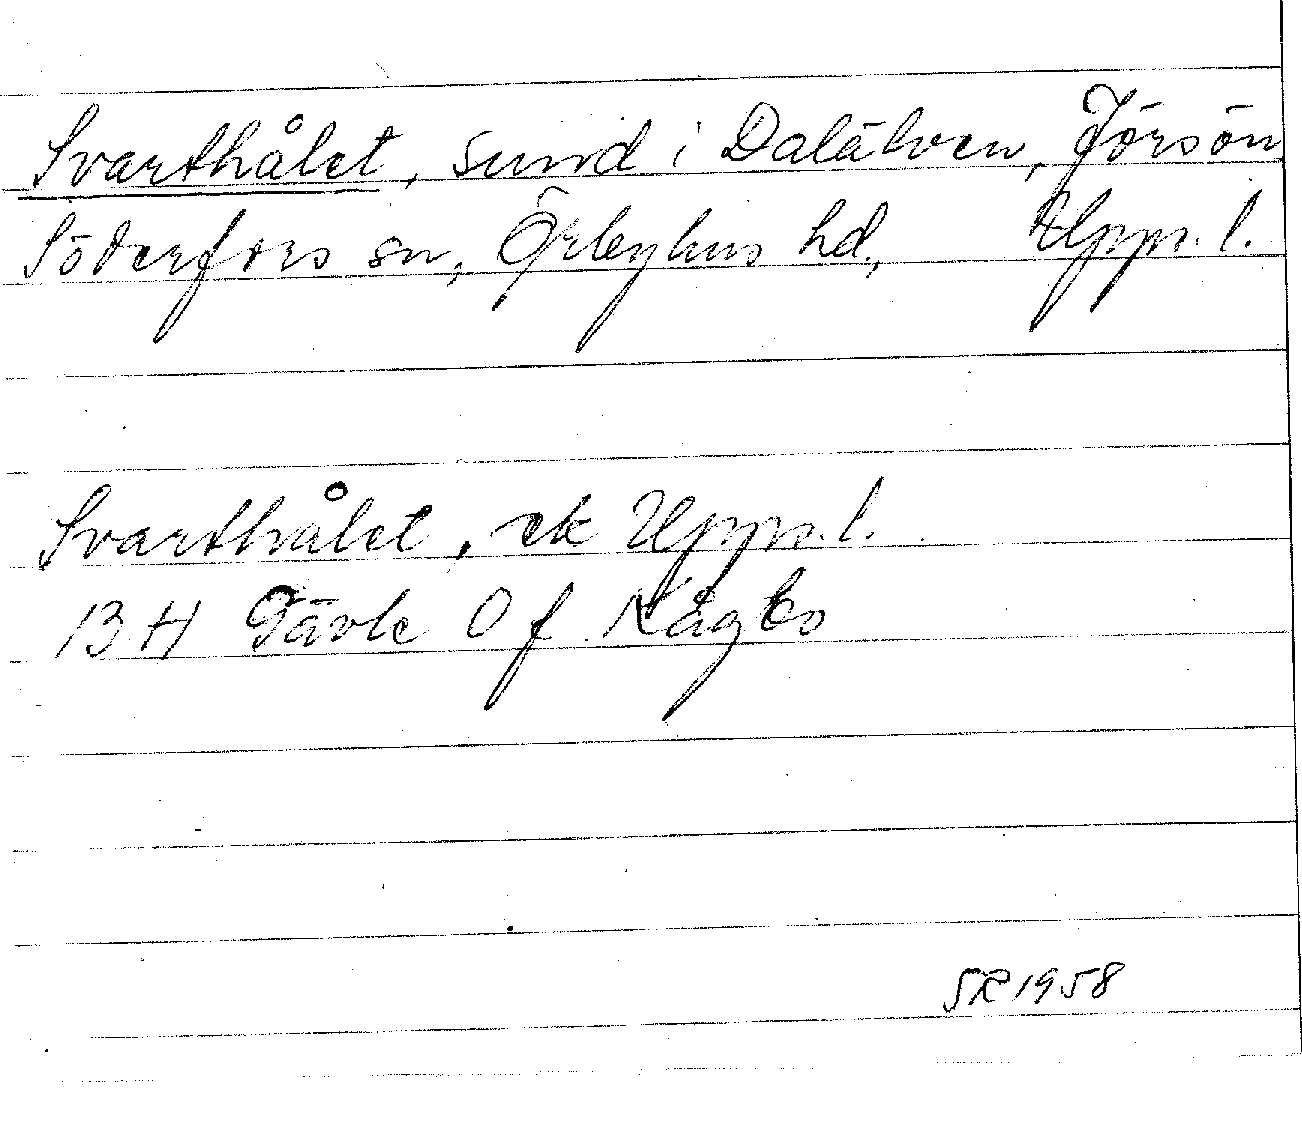 Svarthålet, sund i Dalälven, Jörsön
Söderfors sn, Örbyhus hd, Upps. l.
Svarthålet, ek Upps. l.
13 H Gävle 0 f Kågbo
SR 1958